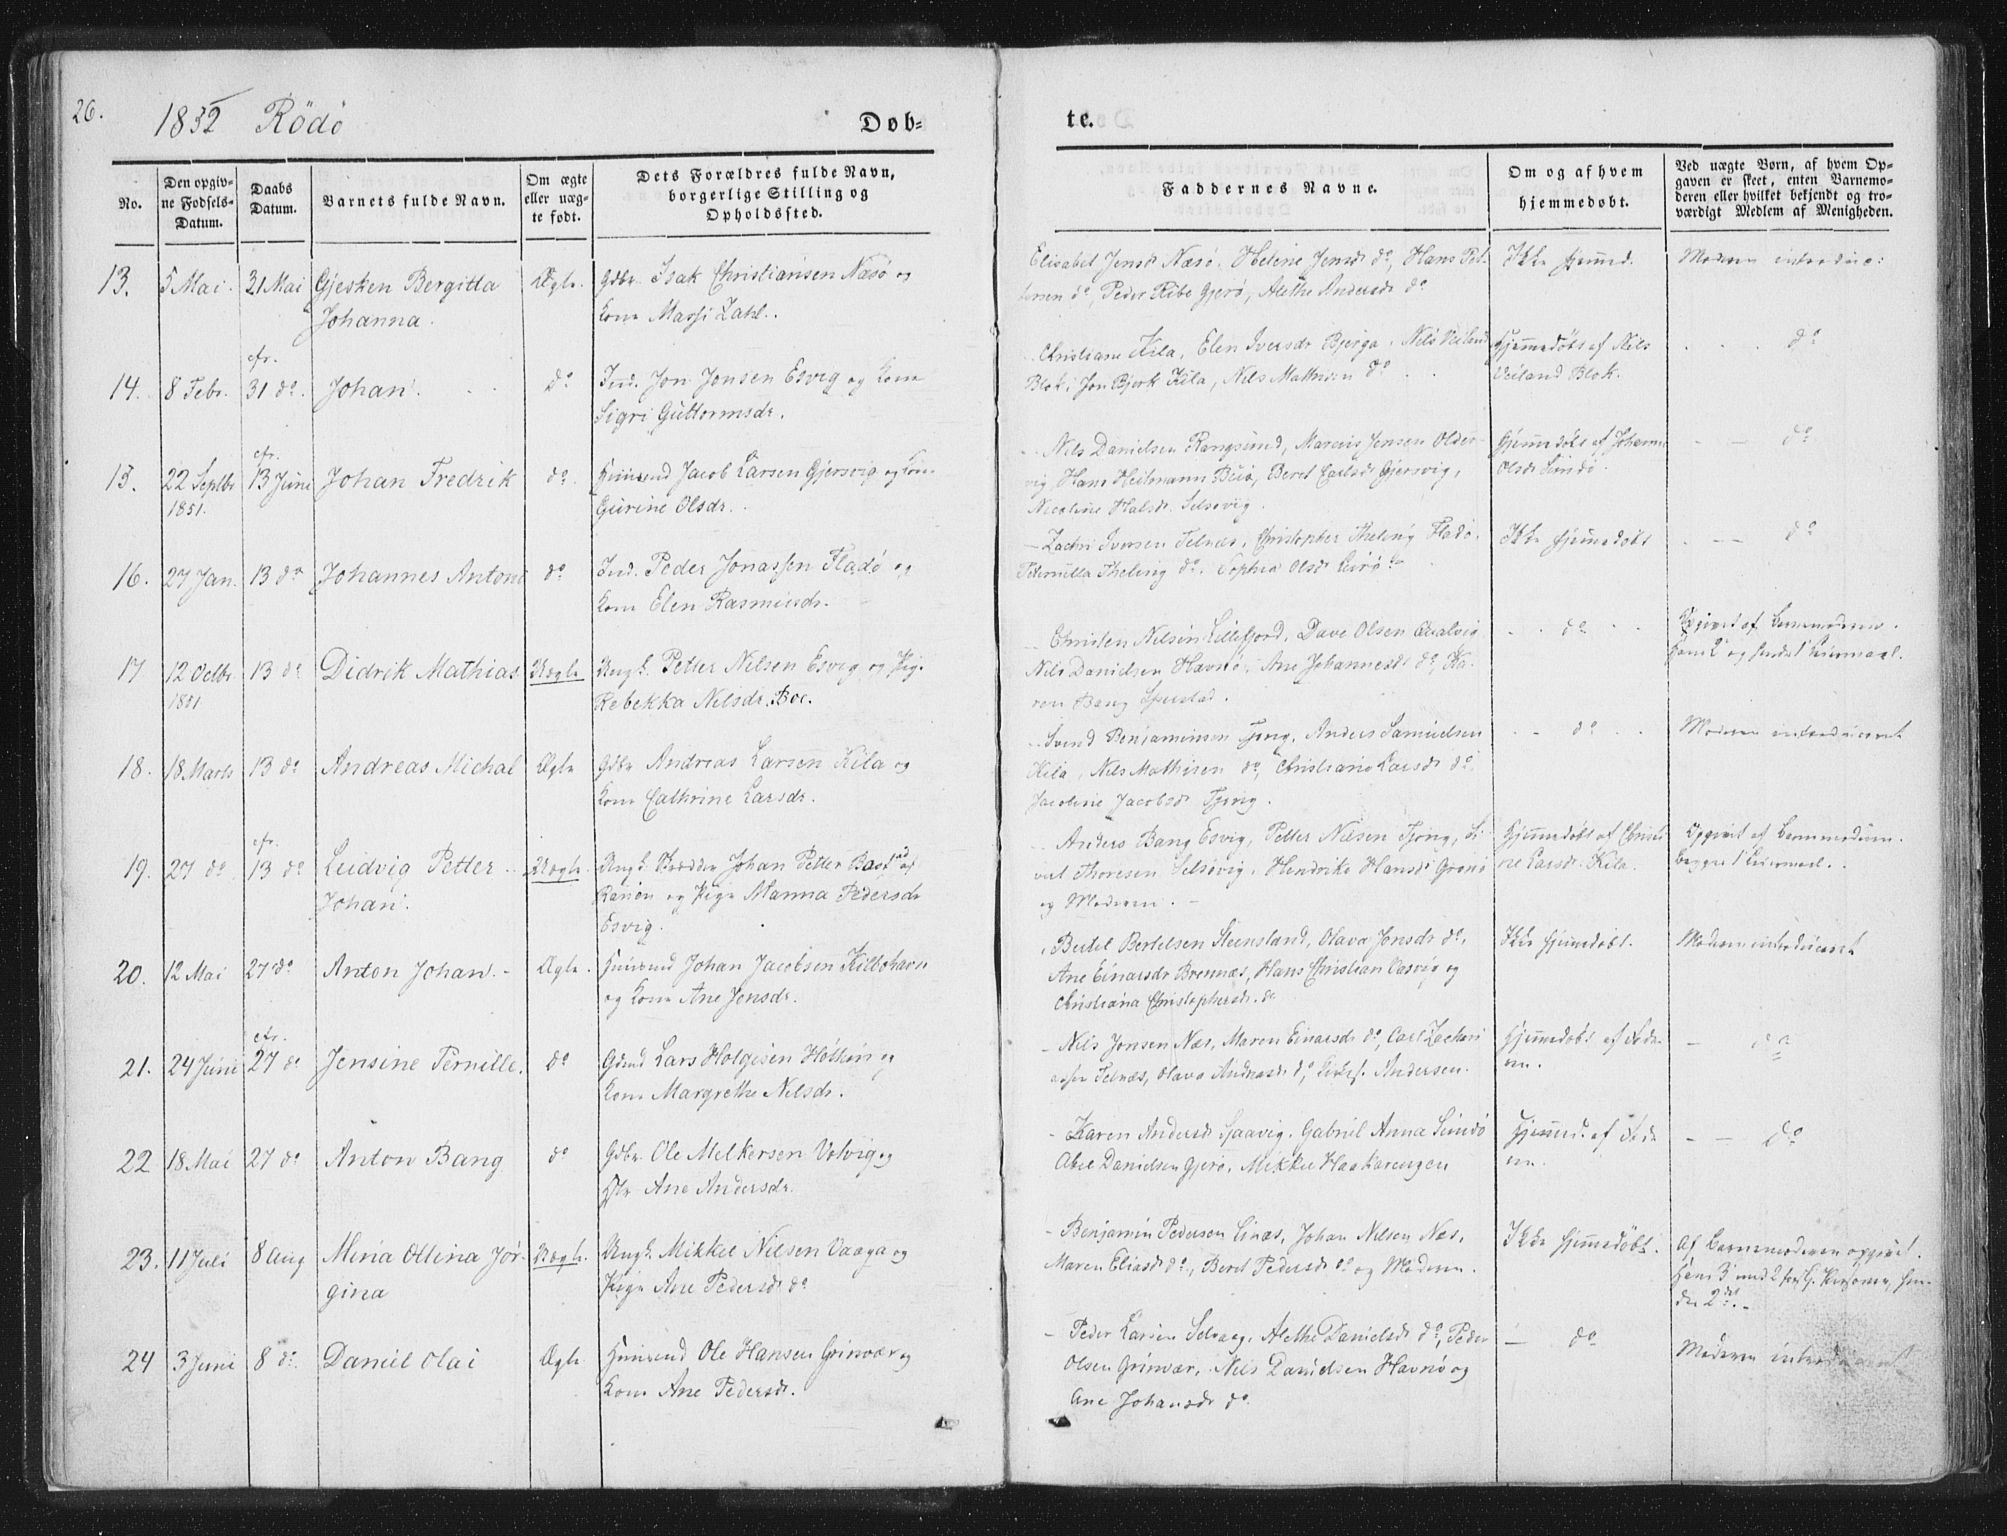 26.
1832 Rödö
Døb-
te.
No.
Den opgiv-
ne Fødsels-
Datum.
Daabs
Datum.
Barnets fulde Navn.
Om ægte
eller uæg-
te født.
Dets Forældres fulde Navn,
borgerlige Stilling og
Opholdssted.
Faddernes Navne.
Om og af hvem
hjemmedøbt.
Ved uægte Børn, af hvem Op-
gaven er skeet, enten Barnemo-
deren eller hvilket bekjendt og tro-
værdigt Medlem af Menigheden.
13. 5 Mai. 21 Mai Gjesken Bergitta Ægte. Gdbr. Isak Christiansen Næsø og
Johanna. Kone Massi Zahl.
Elisabet Jensd. Næsø, Helene Jensd. do, Hans Pet-
tersen do, Peder Ribe Gjerø, Alethe Andersd. do
Ikke hjemmd.
Moderen introduc:
cfr.
14. 8 Febr. 31 do. Johan. do Ind. Jon Jonsen Esvig og Kone
Sigri Guttormsdr.
Christiane Kila, Elen Iversdr Bjerga, Nils Veiland
Blok, Jon Bjerk Kila, Nils Mathisen do
Hjemmedøbt af Nils
Veiland Blok.
do
cfr.
15. 22 Septbr 13 Juni Johan Fredrik do. Huusmd Jacob Larsen Gjersvig og Kone
1831. Gurine Olsdr.
Nils Danielsen Rangsund, Marcus Jensen Older-
vig, Hans Heitmann Buø, Beret Carlsdr Gjersvig,
Nicoline Halsdr. Selsøvig.
Hjemmedøbt af Johanne
Olsdr Sundø.
do
16. 27 Jan. 13 do Johannes Antoni do Ind. Peder Jonassen Fladø og
Kone Elen Rasmusdr.
Zachri Iversen Telnæs, Christopher Theling Fladø,
Peternilla Theling do, Sophia Olsdr
Ikke hjemmedøbt
do
17 12 Octbr. 13 do Didrik Mathias Uægte Ungk. Petter Nilsen Esvig og Pig.
1831 Rebekka Nilsdr. Boe.
Christen Nilsen Lillefjord, Dave Olsen Qualvig
Nils Danielsen Havnø, Ane Johannesdr do, Ka-
ren Bang
do
Opgivet af Barnemoderen.
Hans 2 og hendes 1 Leiermaal.
18. 18 Marts 13 do Andreas Michal Ægte Gdbr Andreas Larsen Kila og
Kone Cathrine Larsdr.
Svend Benjaminsen Tjong, Anders Samuelsen
Kila, Nils Mathisen do, Christiane Larsdr do,
Jacobine Jacobsdr Tjong.
do
Moderen introduceret
cfr.
19. 27 do 13 do Ludvig Petter Uægte. Ungk. Johan Petter Bast
Johan. Ranen og Pige Manna Pedersdr
Esvig.
Anders Bang Esvig, Petter Nilsen Tjong, Si-
vert Thoresen Selsøvig, Hendrike Hansdr Grønø
og Moderen.
Hjemmedøbt af Christi-
ne Larsdr. Kila.
Opgivet af Barnemoderen.
begges 1 Leiermaal.
20. 12 Mai 27 do Anton Johan. Ægte. Huusmd Johan Jacobsen Kilbohavn
og Kone Ane Jonsdr.
Bertel Bertelsen Steensland, Olava Jonsdr do,
Ane Einarsdr Brennæs, Hans Christian Vasvig og
Christiana Christophersdr. do
Ikke hjemmedøbt.
Moderen introduceret
cfr.
21. 24 Juni 27 do Jensine Pernille. do Lars Holgersen og
Kone Margrethe Nilsdr.
Nils Jonsen Næs, Maren Einarsdr do, Carl Zachari-
assen Telnæs, Olava Andreasdr do, Andersen.
Hjemmedøbt af Fade-
ren.
do
22 18 Mai 27 do Anton Bang do Gdbr. Ole Melkersen Valvig og
Ane Andersdr.
Karen Andersdr Spaavig, Gabriel Anna Sundø
Abel Danielsen Gjerø, Mikkel
Hjemmd. af Fade
ren.
do
23. 11 Juli 8 Aug Miria Ollina Jør- Uægte. Ungk. Mikkel Nilsen Vaaga og
gina Pige Ane Pedersdr do
Benjamin Pedersen Næs, Johan Nilsen Næs,
Maren Eliasdr do, Beret Pedersdr do og Moderen.
Ikke hjemmedøbt.
Af Barnemoderen opgivet.
Hans 3 med 2 forskj. Personer, hen-
des 2det.
24 3 Juni 8 do. Daniel Olai Ægte. Huusmd Ole Hansen Grinvær og
Kone Ane Pedersdr.
Peder Larsen Selvaag, Alethe Danielsdr do, Peder
Olsen Grinvær, Nils Danielsen Havnø og
Ane Johansdr do
do
Moderen introduceret